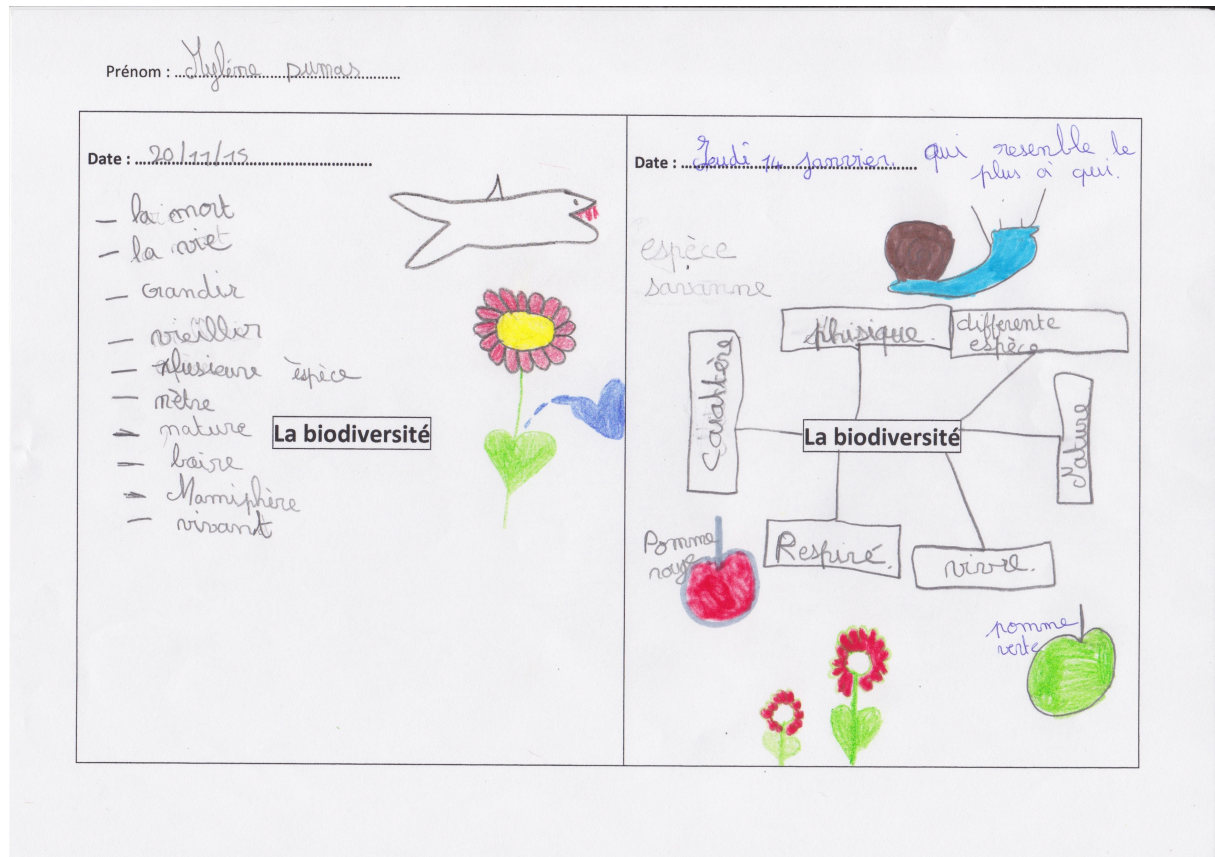 Prénom : Mylène Dumas
Date : 20/11/15
– la mort
– la vie
– Grandir
– vieillir
– plusieure èspèce
– nètre
– nature
– boire
– Mamiphère
– vivant
La biodiversité
Date : Jeudi 14 janvier. qui resenble le
plus à qui.
espèce
savanne
phisique.
differente
espèce
Caractère
La biodiversité
Nature
Respiré.
vivre.
Pomme
rouge
pomme
verte